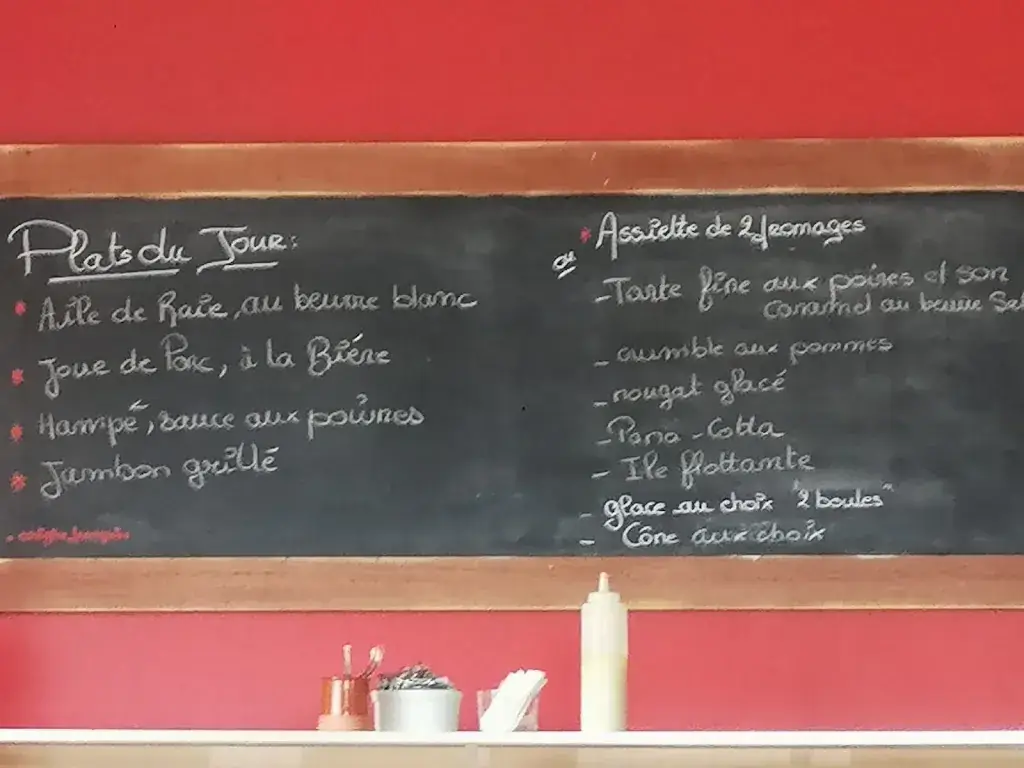 Plats du Jour:
* Aile de Raie, au beurre blanc
* Joue de Porc, à la Biére
* Hampé, sauce aux poivres
* Jambon grillé
* Assiette de 2 fromages
ou
- Tarte fine aux poires et son
caramel au beurre Sal
- crumble aux pommes
- nougat glacé
- Pana-Cotta
- Ile flottante
- glace au choix "2 boules"
- Cône aux choix